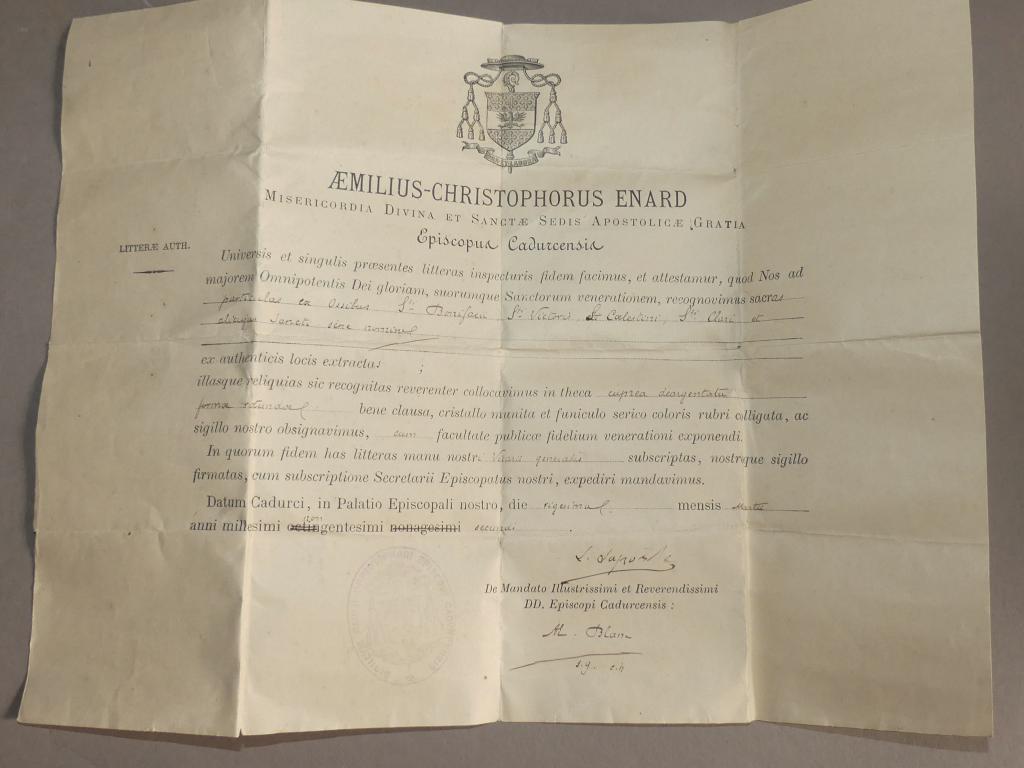 ÆMILIUS-CHRISTOPHORUS ENARD
MISERICORDIA DIVINA ET SANCTÆ SEDIS APOSTOLICÆ GRATIA
Episcopus Cadurcensis
LITTERÆ AUTH.
Universis et singulis præsentes litteras inspecturis fidem facimus, et attestamur, quod Nos ad
majorem Omnipotentis Dei gloriam, suorumque Sanctorum venerationem, recognovimus sacras
particulas ex Ossibus Sti Bonifacii, Sti Victoris, Sti Cœlestini, Sti Clari et
alicujus Sancti sine nomine
ex authenticis locis extractas ;
illasque reliquias sic recognitas reverenter collocavimus in theca cuprea deargentata
formæ rotundæ bene clausa, cristallo munita et funiculo serico coloris rubri colligata, ac
sigillo nostro obsignavimus, cum facultate publicæ fidelium venerationi exponendi.
In quorum fidem has litteras manu nostri Vicarii generalis subscriptas, nostroque sigillo
firmatas, cum subscriptione Secretarii Episcopatus nostri, expediri mandavimus.
Datum Cadurci, in Palatio Episcopali nostro, die vigesima mensis
anni millesimi octingentesimi nonagesimi secundi.
De Mandato Illustrissimi et Reverendissimi
DD. Episcopi Cadurcensis :
M. Blanc